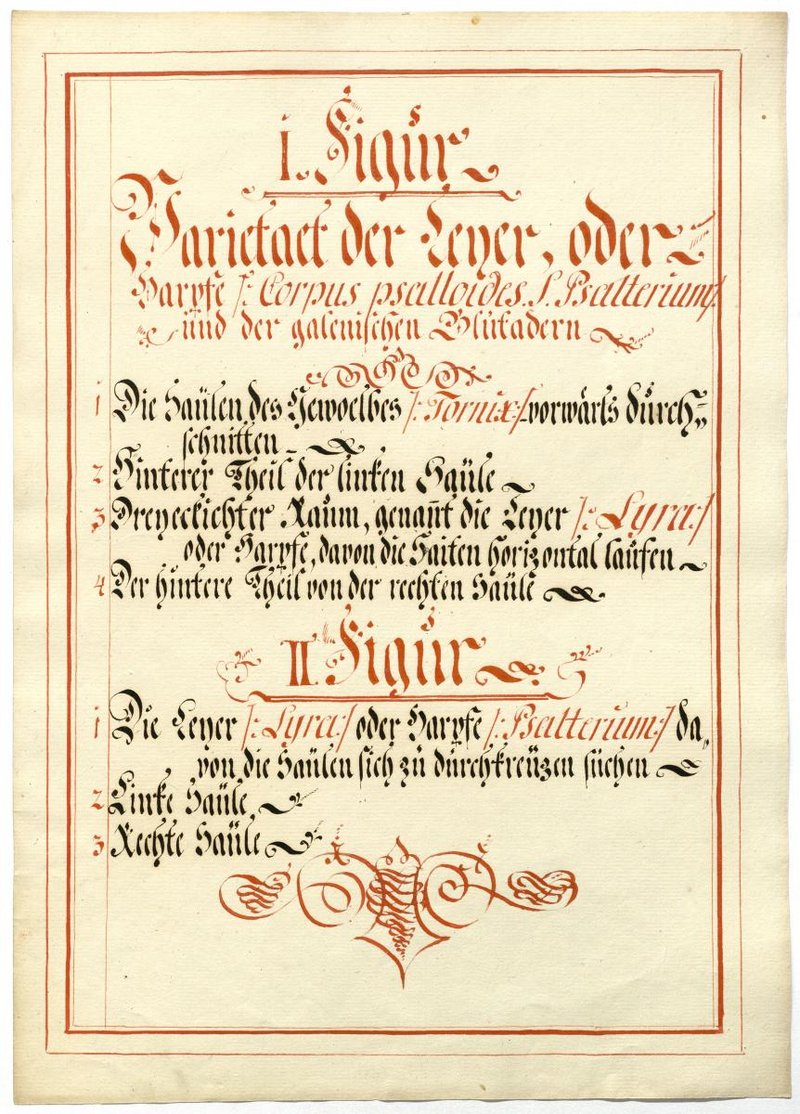 I. Figur
Varietaet der Leyer, oder
Harpfe /: Corpus psalloides. S. Psalterium:/
und der galenischen Blutadern
1 Die Saülen des Gewoelbes /: Fornix:/ vorwärts dürch=
schnitten
2 Hinterer Theil der linken Saüle
3 Dreyeckichter Raum, genañt die Leyer /: Lyra:/
oder Harpfe, davon die Saiten horizontal laufen
4 Der hintere Theil von der rechten Saüle
II. Figur
1 Die Leyer /: Lyra:/ oder Harpfe /: Psalterium:/ da,
von die Saülen sich zu dürchkreüzen suchen
2 Linke Saüle
3 Rechte Saüle